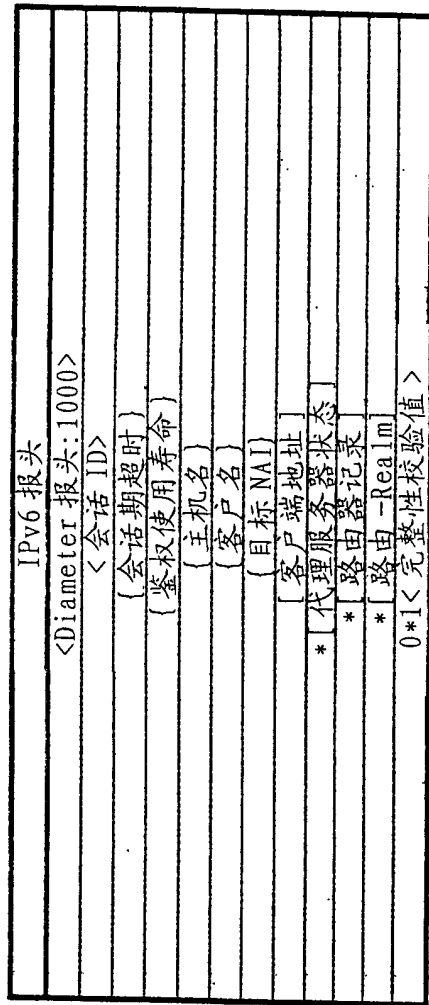 IPv6 报头
<Diameter 报头:1000>
<会话 ID>
{会话期超时}
{鉴权使用寿命}
{主机名}
{客户名}
{目标 NAI}
[客户端地址]
*[代理服务器状态]
*[路由器记录]
*[路由 -Realm]
0*1<完整性校验值>